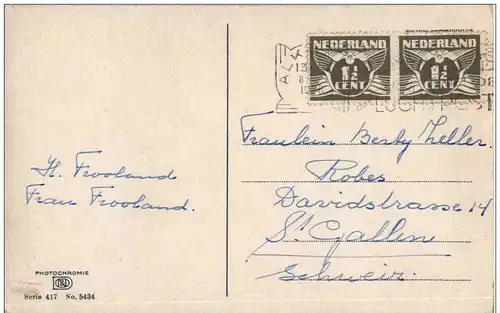 NEDERLAND NEDERLAND
1½ 1½
CENT CENT
LUCHTPOST
H. Frooland
Frau Frooland.
Fräulein Berty Zeller.
Robes
Davidstrasse 14
St Gallen
Schweiz.
PHOTOCHROMIE
Serie 417 No. 5434